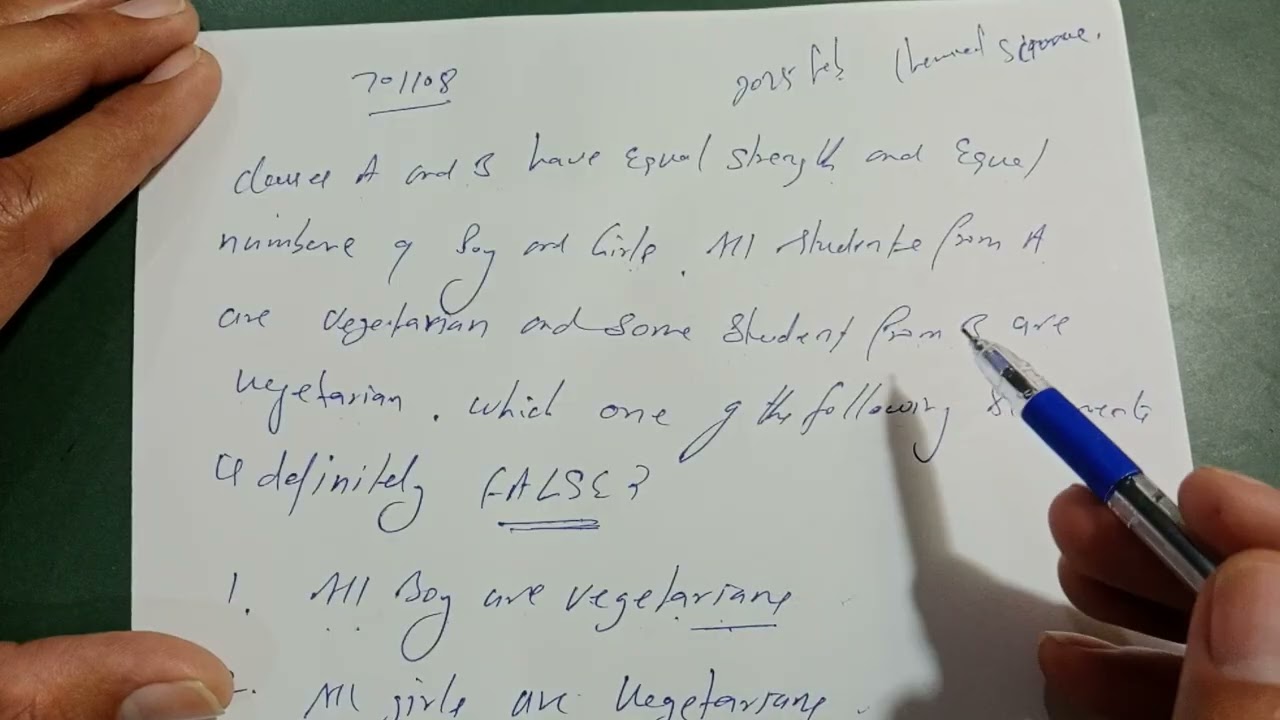 701108
2025 Feb Chemical Science.
classes A and B have Equal strength and Equal
numbers of Boy and Girls. All students from A
are vegetarian and some student from B are
vegetarian. which one of the following
is definitely FALSE?
1. All Boy are vegetarians
2. All girls are vegetarians.